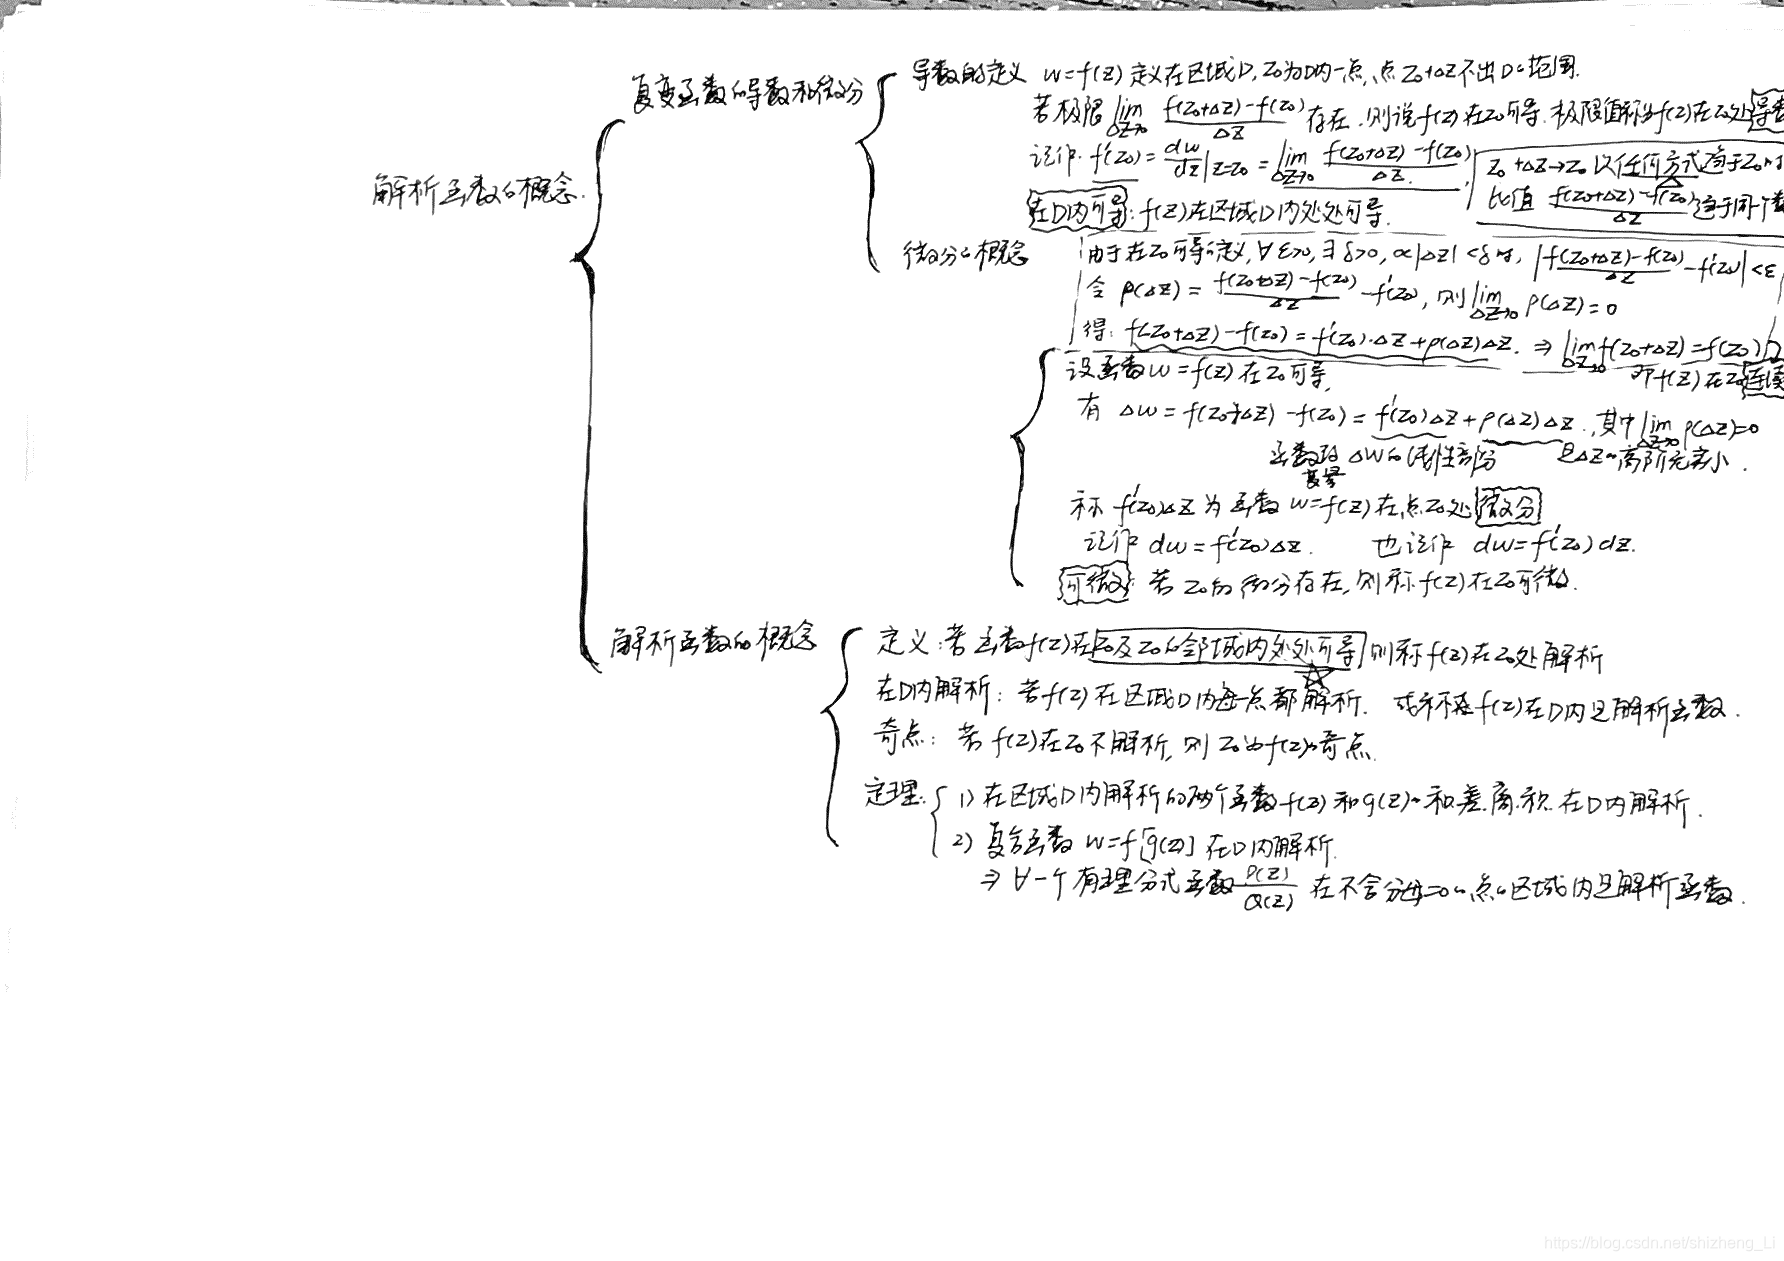 复变函数的导数和微分
导数的定义 w=f(z)定义在区域D,z₀为D内一点,点z₀+Δz不出D的范围.
若极限 lim_{Δz→0} (f(z₀+Δz)-f(z₀))/Δz 存在.则说f(z)在z₀可导.极限值称为f(z)在z₀处导数
记作. f'(z₀)=dw/dz|z=z₀ = lim_{Δz→0} (f(z₀+Δz)-f(z₀))/Δz.
z₀+Δz→z₀ 以任何方式趋于z₀时
比值 (f(z₀+Δz)-f(z₀))/Δz 趋于同个数
在D内可导: f(z)在区域D内处处可导.
解析函数的概念.
微分的概念
由于在z₀可导的定义, ∀ε>0, ∃δ>0, 0<|Δz|<δ时, |(f(z₀+Δz)-f(z₀))/Δz - f'(z₀)|<ε
令 ρ(Δz)= (f(z₀+Δz)-f(z₀))/Δz - f'(z₀), 则 lim_{Δz→0} ρ(Δz)=0
得: f(z₀+Δz)-f(z₀)=f'(z₀)·Δz+ρ(Δz)Δz. ⇒ lim_{Δz→0} f(z₀+Δz)=f(z₀)
即f(z)在z₀连续
设函数w=f(z)在z₀可导,
有 Δw=f(z₀+Δz)-f(z₀)=f'(z₀)Δz+ρ(Δz)Δz.,其中 lim_{Δz→0} ρ(Δz)=0
函数改变量 Δw的线性部分 是Δz的高阶无穷小.
称 f'(z₀)Δz 为函数 w=f(z)在点z₀处微分
记作 dw=f'(z₀)Δz. 也记作 dw=f'(z₀)dz.
可微: 若z₀的微分存在,则称f(z)在z₀可微.
解析函数的概念
定义:若函数f(z)在z₀及z₀的邻域内处处可导则称f(z)在z₀处解析
在D内解析: 若f(z)在区域D内每一点都解析. 或称f(z)在D内是解析函数.
奇点: 若f(z)在z₀不解析,则z₀为f(z)的奇点.
定理: 1) 在区域D内解析的两个函数f(z)和g(z)的和.差.商.积.在D内解析.
2) 复合函数 w=f[g(z)] 在D内解析.
⇒ ∀一个有理分式函数 P(z)/Q(z) 在不含分母=0的点的区域内是解析函数.
https://blog.csdn.net/shizheng_Li